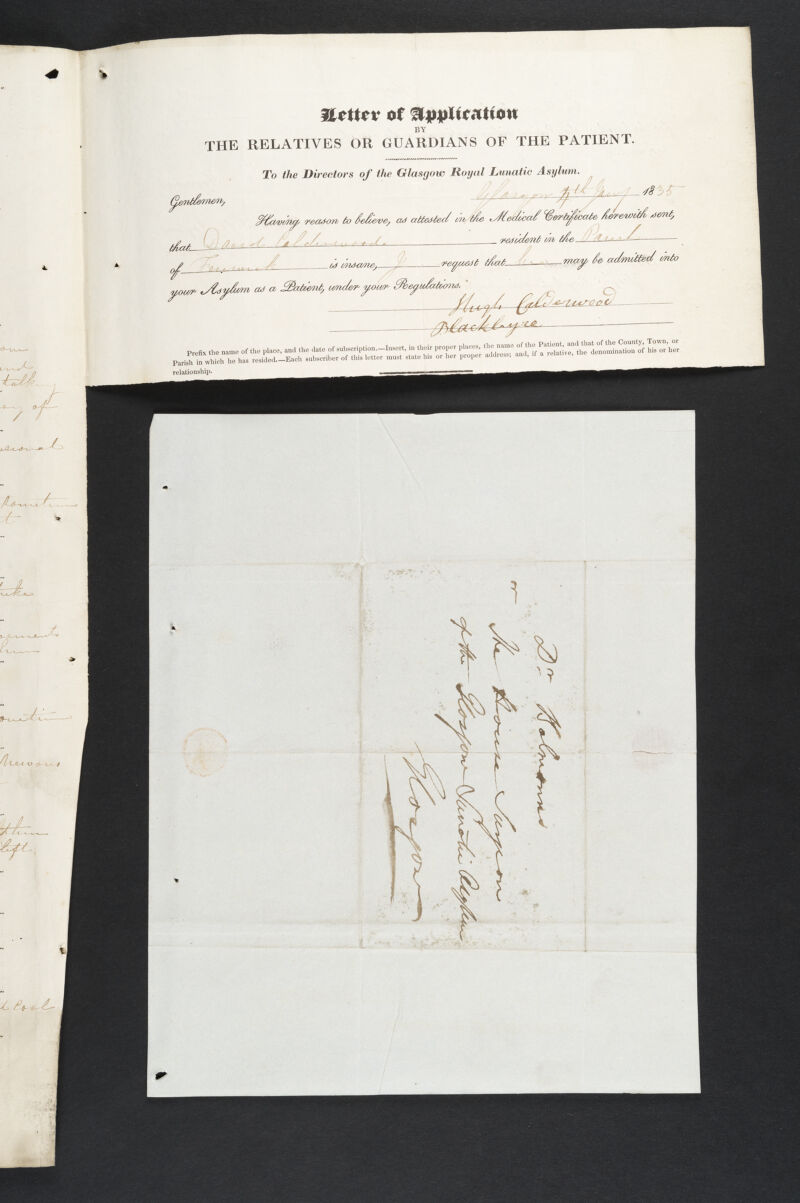 Letter of Application
BY
THE RELATIVES OR GUARDIANS OF THE PATIENT.
To the Directors of the Glasgow Royal Lunatic Asylum.
Glasgow 4th Jany 1835
Gentlemen,
Having reason to believe, as attested in the Medical Certificate herewith sent,
that David Calderwood resident in the Parish
of Fenwick is insane, I request that he may be admitted into
your Asylum as a Patient, under your Regulations.
Hugh Calderwood
Blackbyre
Prefix the name of the place, and the date of subscription.—Insert, in their proper places, the name of the Patient, and that of the County, Town, or
Parish in which he has resided.—Each subscriber of this letter must state his or her proper address; and, if a relative, the denomination of his or her
relationship.
talk
of
Nervous
left
Coal
Dr
or
The House Surgeon
of the Glasgow Lunatic Asylum
Glasgow